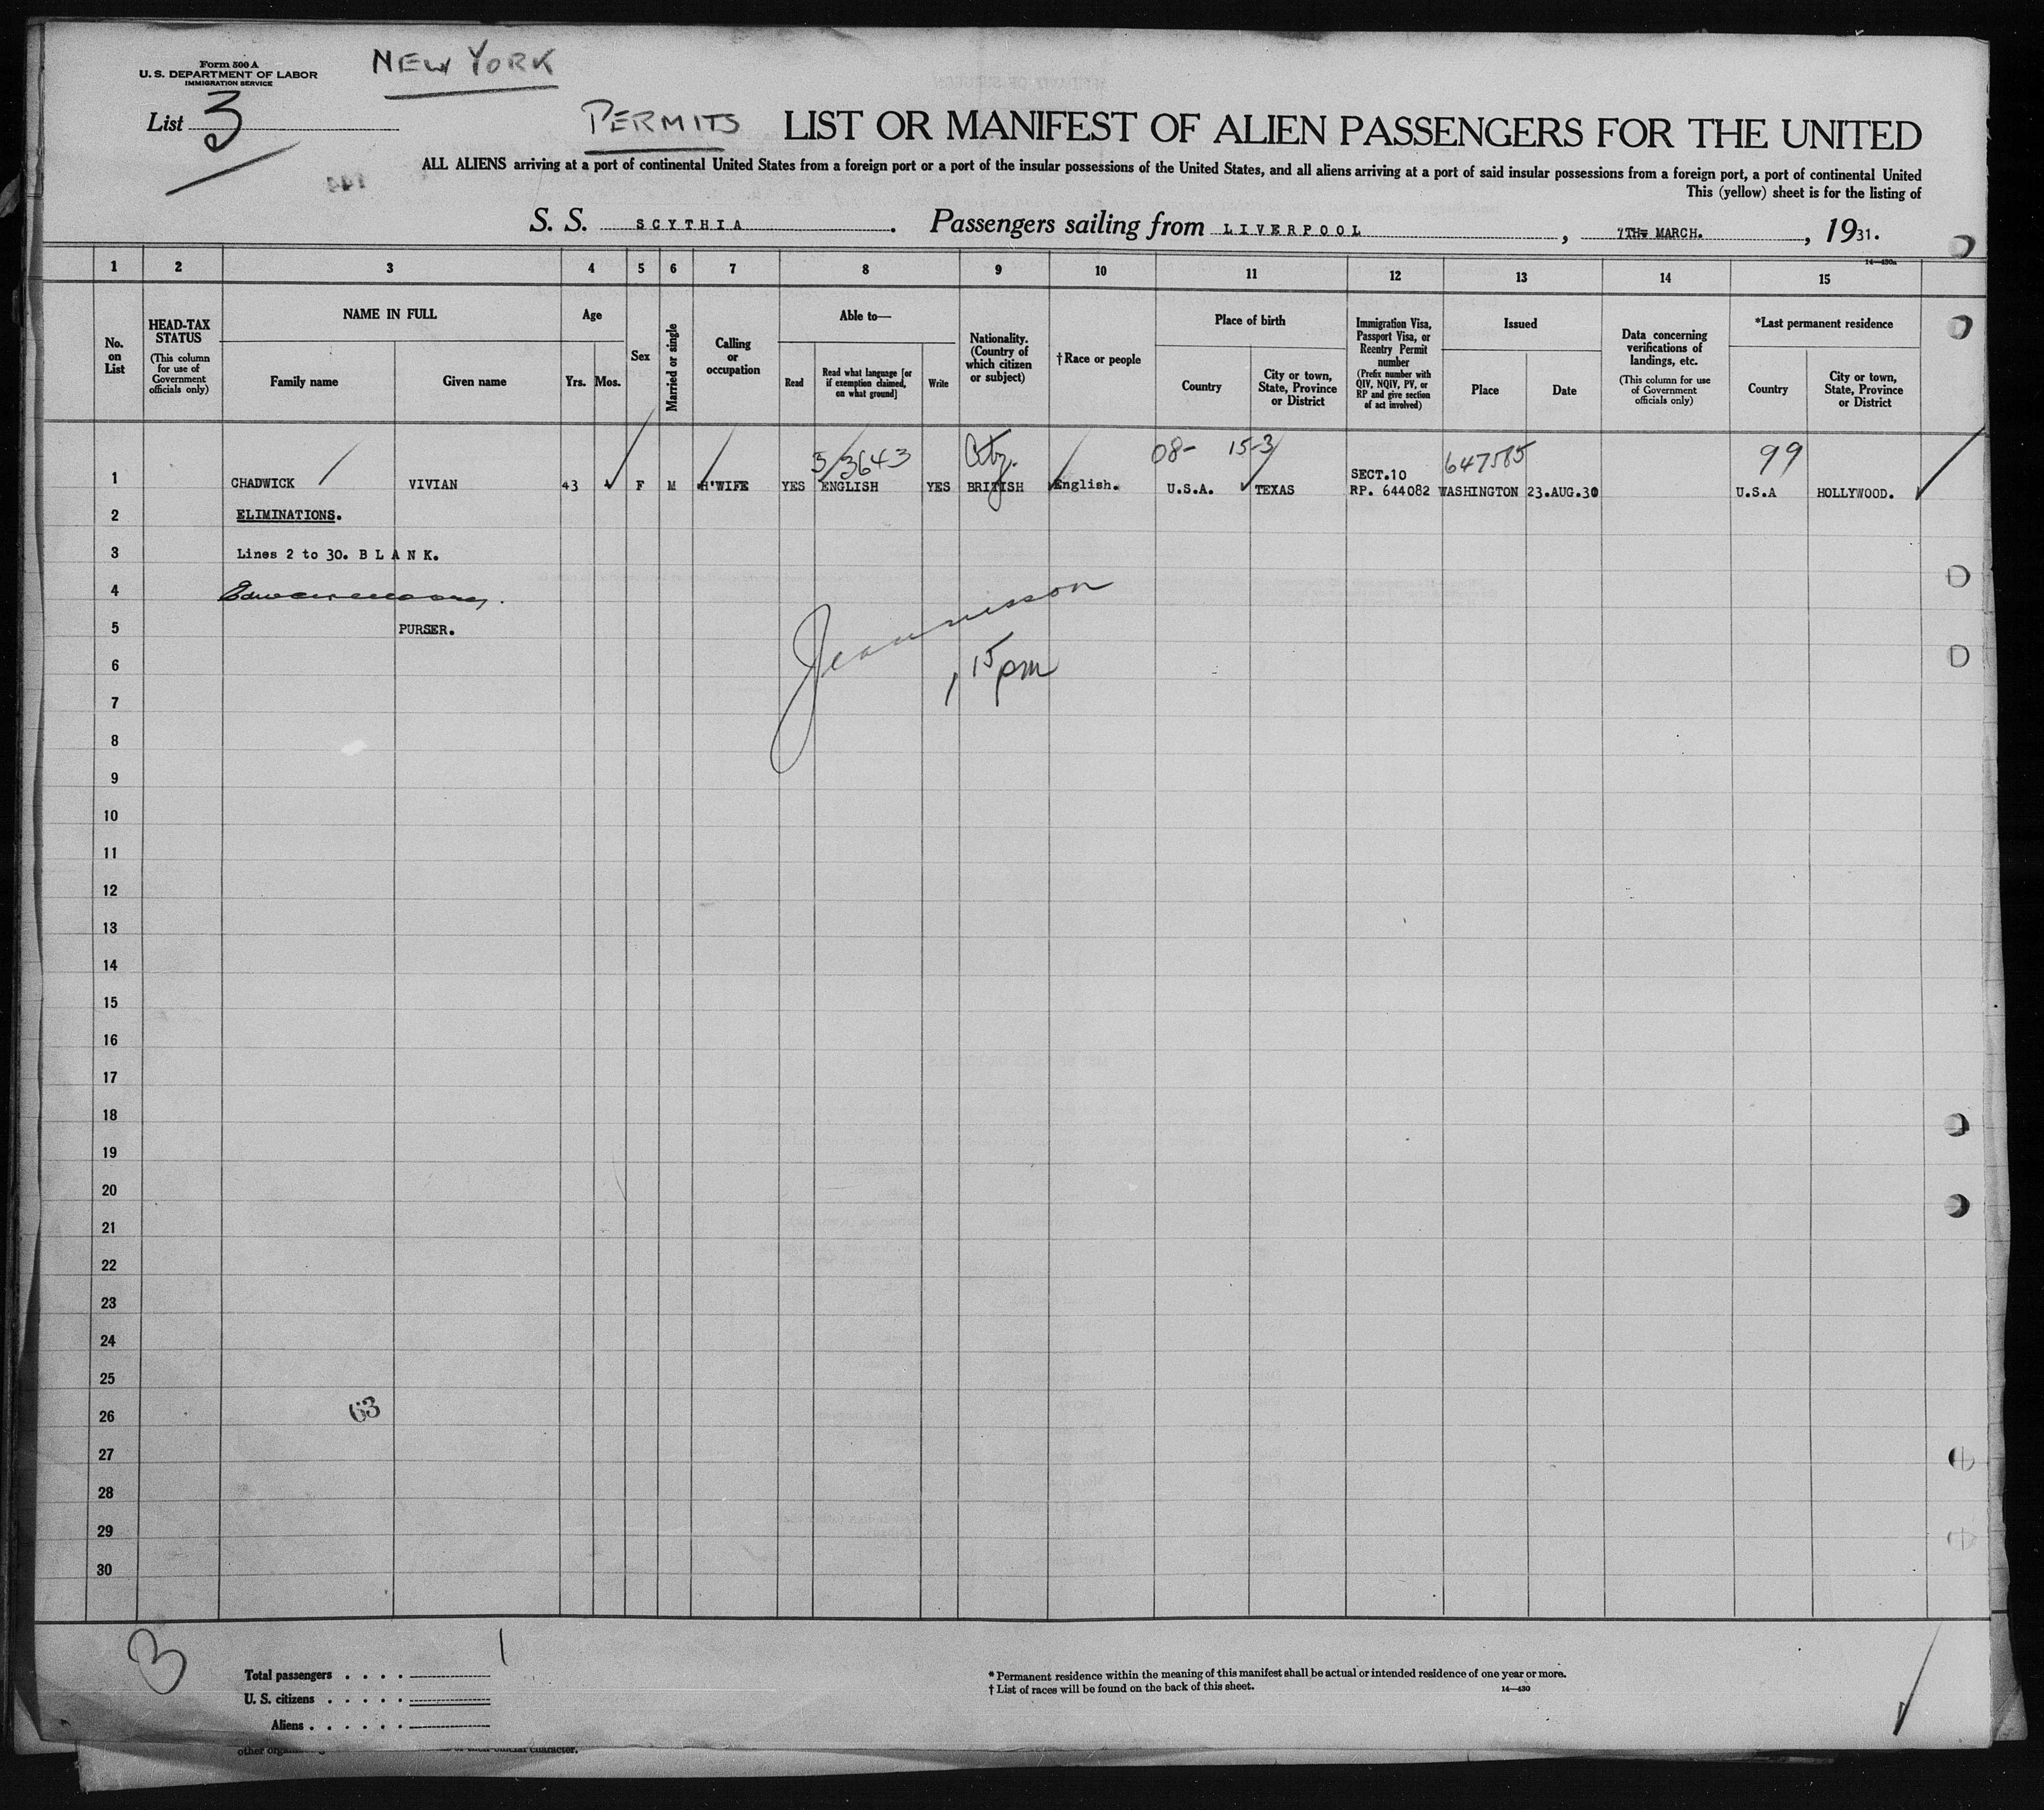 Form 500 A
U. S. DEPARTMENT OF LABOR
IMMIGRATION SERVICE
NEW YORK
List 3
PERMITS
LIST OR MANIFEST OF ALIEN PASSENGERS FOR THE UNITED
ALL ALIENS arriving at a port of continental United States from a foreign port or a port of the insular possessions of the United States, and all aliens arriving at a port of said insular possessions from a foreign port, a port of continental United
This (yellow) sheet is for the listing of
S. S. SCYTHIA. Passengers sailing from LIVERPOOL, 7TH MARCH., 1931.
14—430a
1 2 3 4 5 6 7 8 9 10 11 12 13 14 15
No. on List
HEAD-TAX STATUS
(This column for use of Government officials only)
NAME IN FULL
Family name
Given name
Age
Yrs.
Mos.
Sex
Married or single
Calling or occupation
Able to—
Read
Read what language [or if exemption claimed, on what ground]
Write
Nationality. (Country of which citizen or subject)
†Race or people
Place of birth
Country
City or town, State, Province or District
Immigration Visa, Passport Visa, or Reentry Permit number
(Prefix number with QIV, NQIV, PV, or RP and give section of act involved)
Issued
Place
Date
Data concerning verifications of landings, etc.
(This column for use of Government officials only)
*Last permanent residence
Country
City or town, State, Province or District
3/3643
08- 15-3
647585
99
SECT.10
1 CHADWICK VIVIAN 43 F M H'WIFE YES ENGLISH YES BRITISH English. U.S.A. TEXAS RP. 644082 WASHINGTON 23.AUG.30 U.S.A HOLLYWOOD.
2 ELIMINATIONS.
3 Lines 2 to 30. B L A N K.
4
5 PURSER.
6
15 pm
7
8
9
10
11
12
13
14
15
16
17
18
19
20
21
22
23
24
25
26
63
27
28
29
30
3
1
Total passengers . . . .
U. S. citizens . . . . .
Aliens . . . . . .
* Permanent residence within the meaning of this manifest shall be actual or intended residence of one year or more.
† List of races will be found on the back of this sheet.
14—430